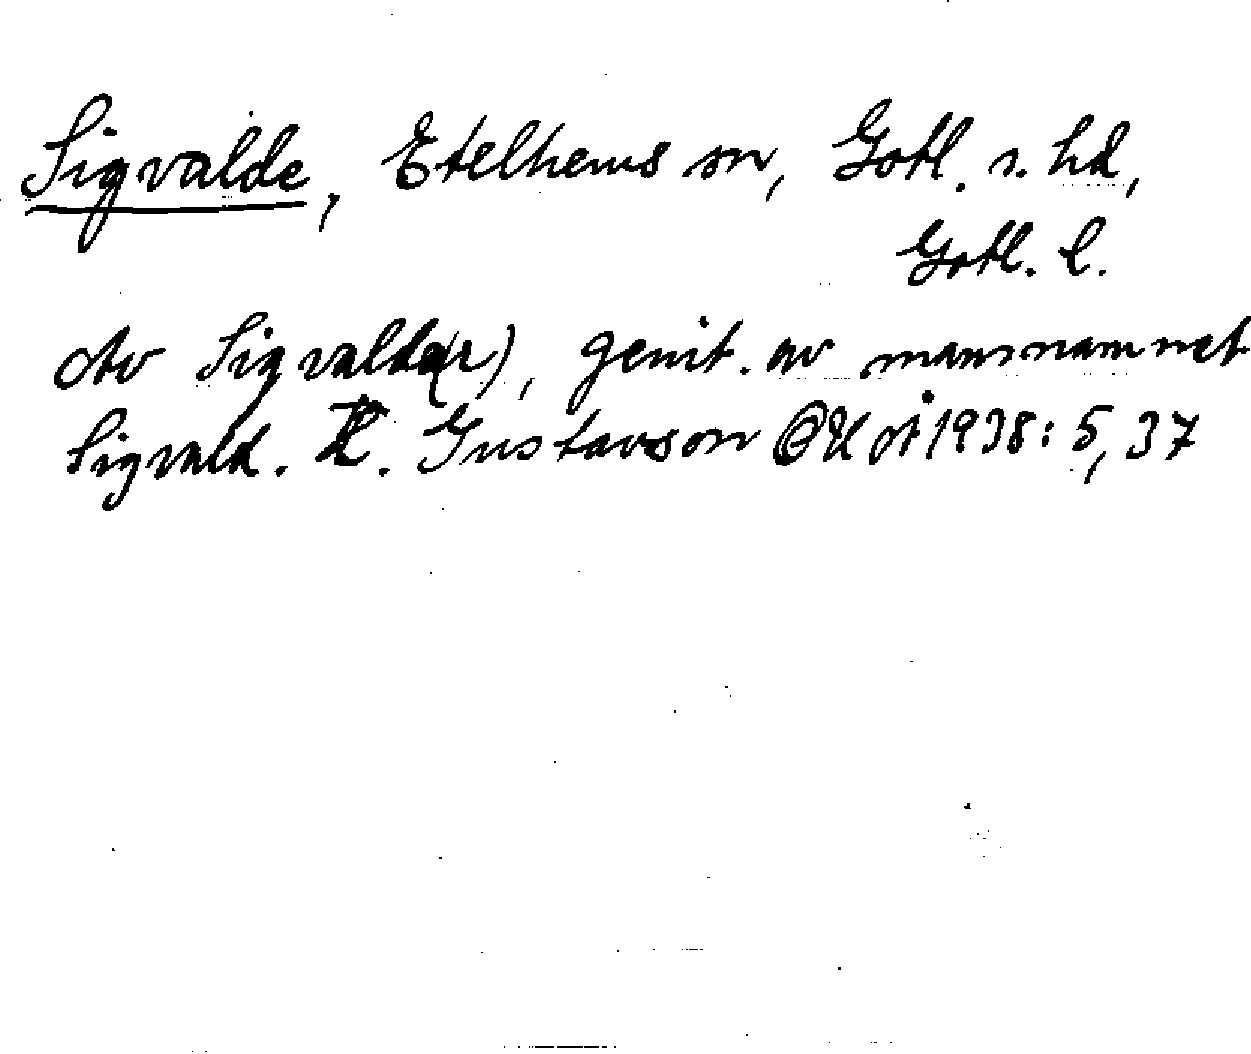 Sigvalde, Etelhems sn, Gotl. s. hd,
Gotl. l.
Av Sigvalda(r), genit. av mansnamnet
Sigvald. H. Gustavson GUÅ 1938: 5, 37